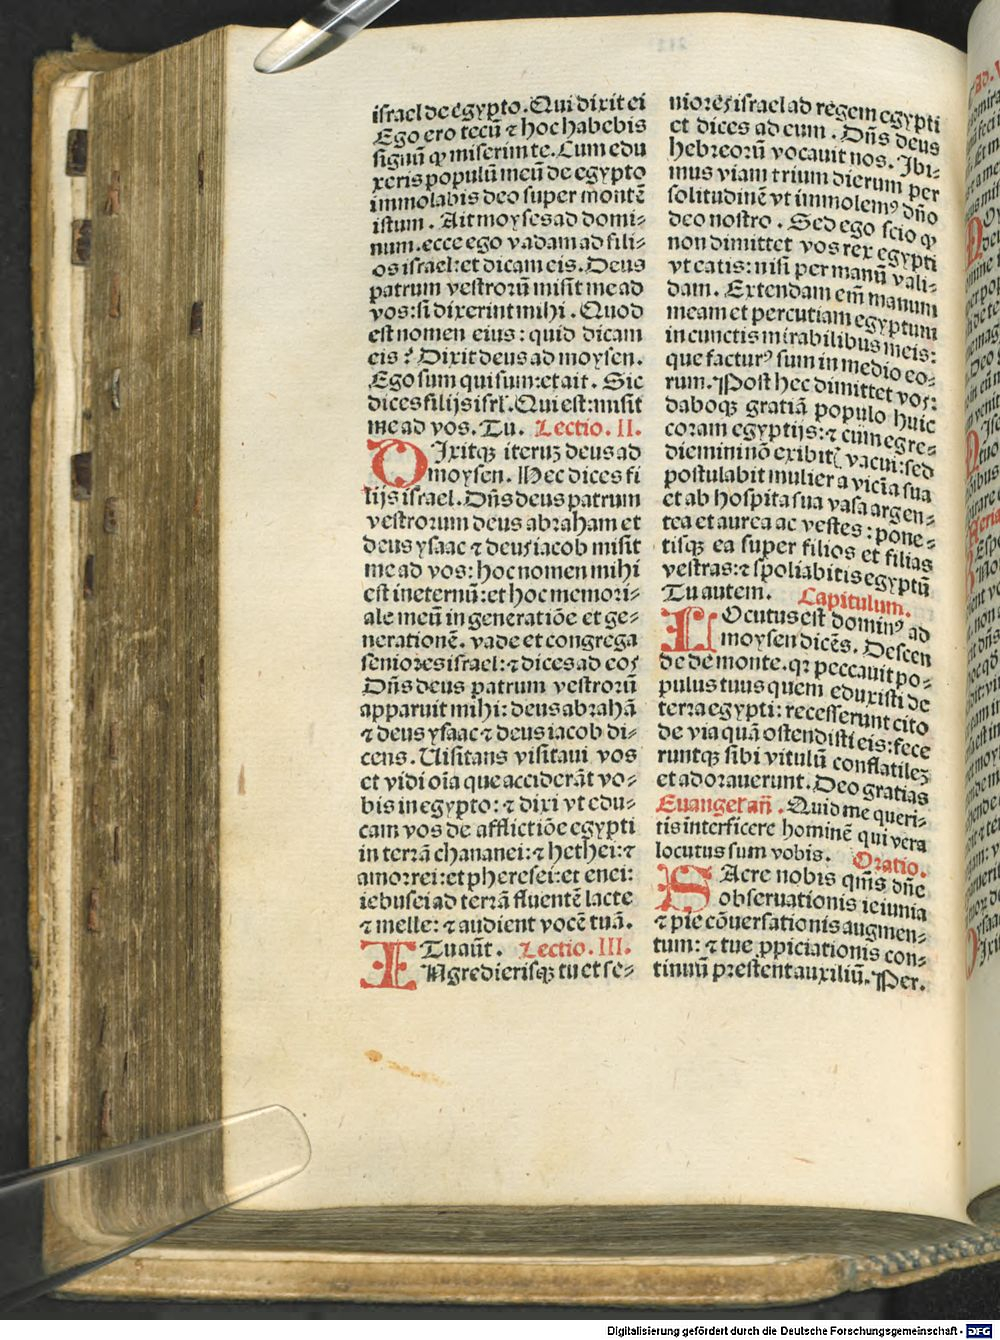 israel de egypto. Qui dixit ei
Ego ero tecū ⁊ hoc habebis
signū ꝙ miserim te. Cum edu
xeris populū meū de egypto
immolabis deo super montē
istum. Ait moyses ad domi⸗
num. ecce ego vadam ad fili⸗
os israel: et dicam eis. Deus
patrum vestrorū misit me ad
vos: si dixerint mihi. Quod
est nomen eius: quid dicam
eis? Dixit deus ad moysen.
Ego sum qui sum: et ait. Sic
dices filijs isrl'. Qui est: misit
me ad vos. Tu. Lectio. II.
DIxitqꝫ iterūꝫ deus ad
moysen. Hec dices fi
lijs israel. Dn̄s deus patrum
vestrorum deus abraham et
deus ysaac ⁊ deus iacob misit
me ad vos: hoc nomen mihi
est in eternū: et hoc memori⸗
ale meū in generatiōe et ge⸗
nerationē. vade et congrega
seniores israel: ⁊ dices ad eos
Dn̄s deus patrum vestrorū
apparuit mihi: deus abrahā
⁊ deus ysaac ⁊ deus iacob di⸗
cens. Uisitans visitaui vos
et vidi oīa que acciderāt vo⸗
bis in egypto: ⁊ dixi vt edu⸗
cam vos de afflictiōe egypti
in terrā chananei: ⁊ hethei: ⁊
amorrei: et pheresei: et enei:
iebusei ad terrā fluentē lacte
⁊ melle: ⁊ audient vocē tuā.
Tu aūt. Lectio. III.
INgredierisqꝫ tu et se⸗
niores israel ad regem egypti
et dices ad eum. Dn̄s deus
hebreorū vocauit nos. Ibi⸗
mus viam trium dierum per
solitudinē vt immolemꝰ dn̄o
deo nostro. Sed ego scio ꝙ
non dimittet vos rex egypti
vt eatis: nisi per manū vali⸗
dam. Extendam em̄ manum
meam et percutiam egyptum
in cunctis mirabilibus meis:
que facturꝰ sum in medio eo⸗
rum. Post hec dimittet vos:
daboqꝫ gratiā populo huic
coram egyptijs: ⁊ cum egre⸗
diemini nō exibit' vacui: sed
postulabit mulier a vicīa sua
et ab hospita sua vasa argen⸗
tea et aurea ac vestes: pone⸗
tisqꝫ ea super filios et filias
vestras: ⁊ spoliabitis egyptū
Tu autem. Capitulum.
LOcutus est dominꝰ ad
moysen dicēs. Descen
de de monte. qꝛ peccauit po⸗
pulus tuus quem eduxisti de
terra egypti: recesserunt cito
de via quā ostendisti eis: fece
runtqꝫ sibi vitulū conflatilez
et adorauerunt. Deo gratias
Euangel' an̄. Quid me queri⸗
tis interficere hominē qui vera
locutus sum vobis. Oratio.
SAcre nobis qm̄s dn̄e
obseruationis ieiunia
⁊ pie cōuersationis augmen⸗
tum: ⁊ tue ꝓpiciationis con⸗
tinuū prestent auxiliū. Per.
Digitalisierung gefördert durch die Deutsche Forschungsgemeinschaft - DFG